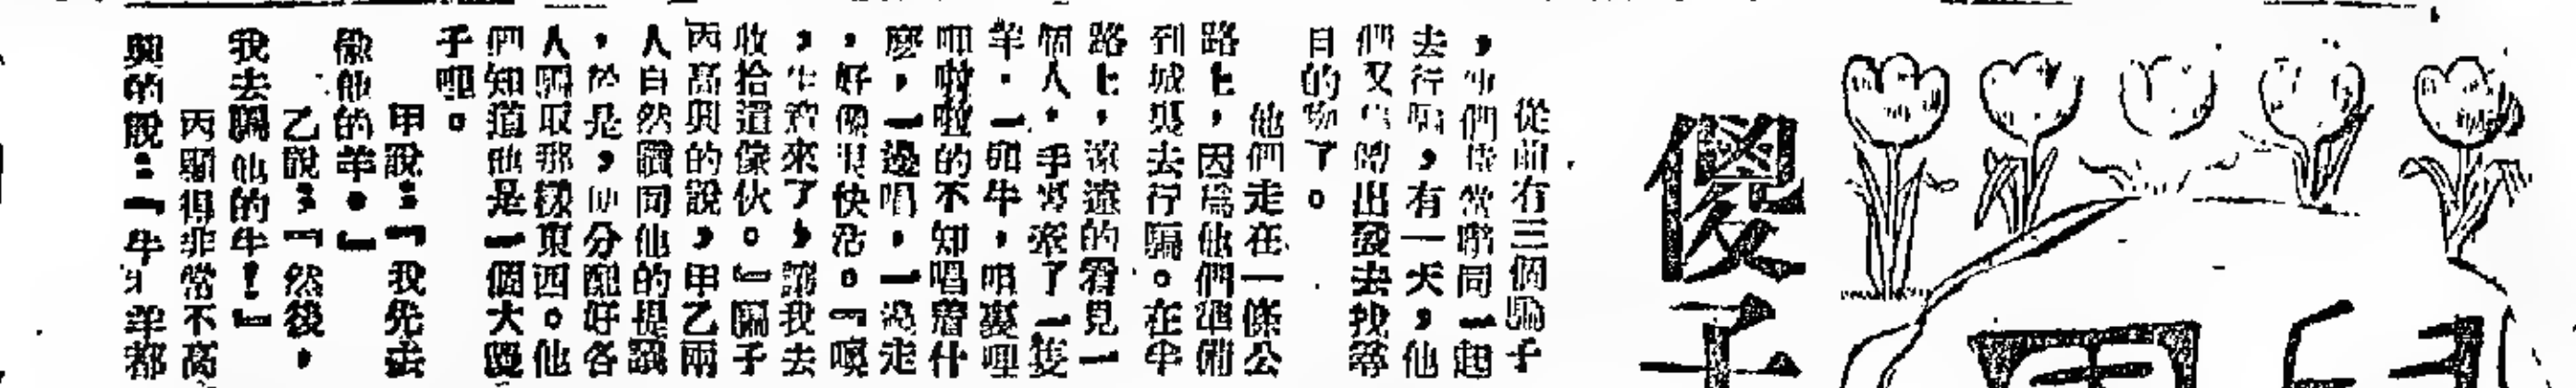 傻子
從前有三個騙子
，他們時常嚟同一起
去行騙，有一天，他
們又出發去找尋
目的物了。
他們走在一條公
路上，因爲他們準備
到城裏去行騙。在半
路上，遠遠的看見一
個人，手牽了一隻
羊，一頭牛，唱裏哩
呱啦啦的不知唱着什
麼，一邊唱，一邊走
，好像很快活。『嘿
，生意來了，讓我去
收拾這傢伙。』騙子
丙高興的說，甲乙兩
人自然贊同他的提議
，於是，他分配好各
人騙取那樣東西。他
們知道他是一個大傻
子呢。
甲說：『我先去
偷他的羊。』
乙說：『然後，
我去騙他的牛！』
丙顯得非常不高
興的說：『牛羊都